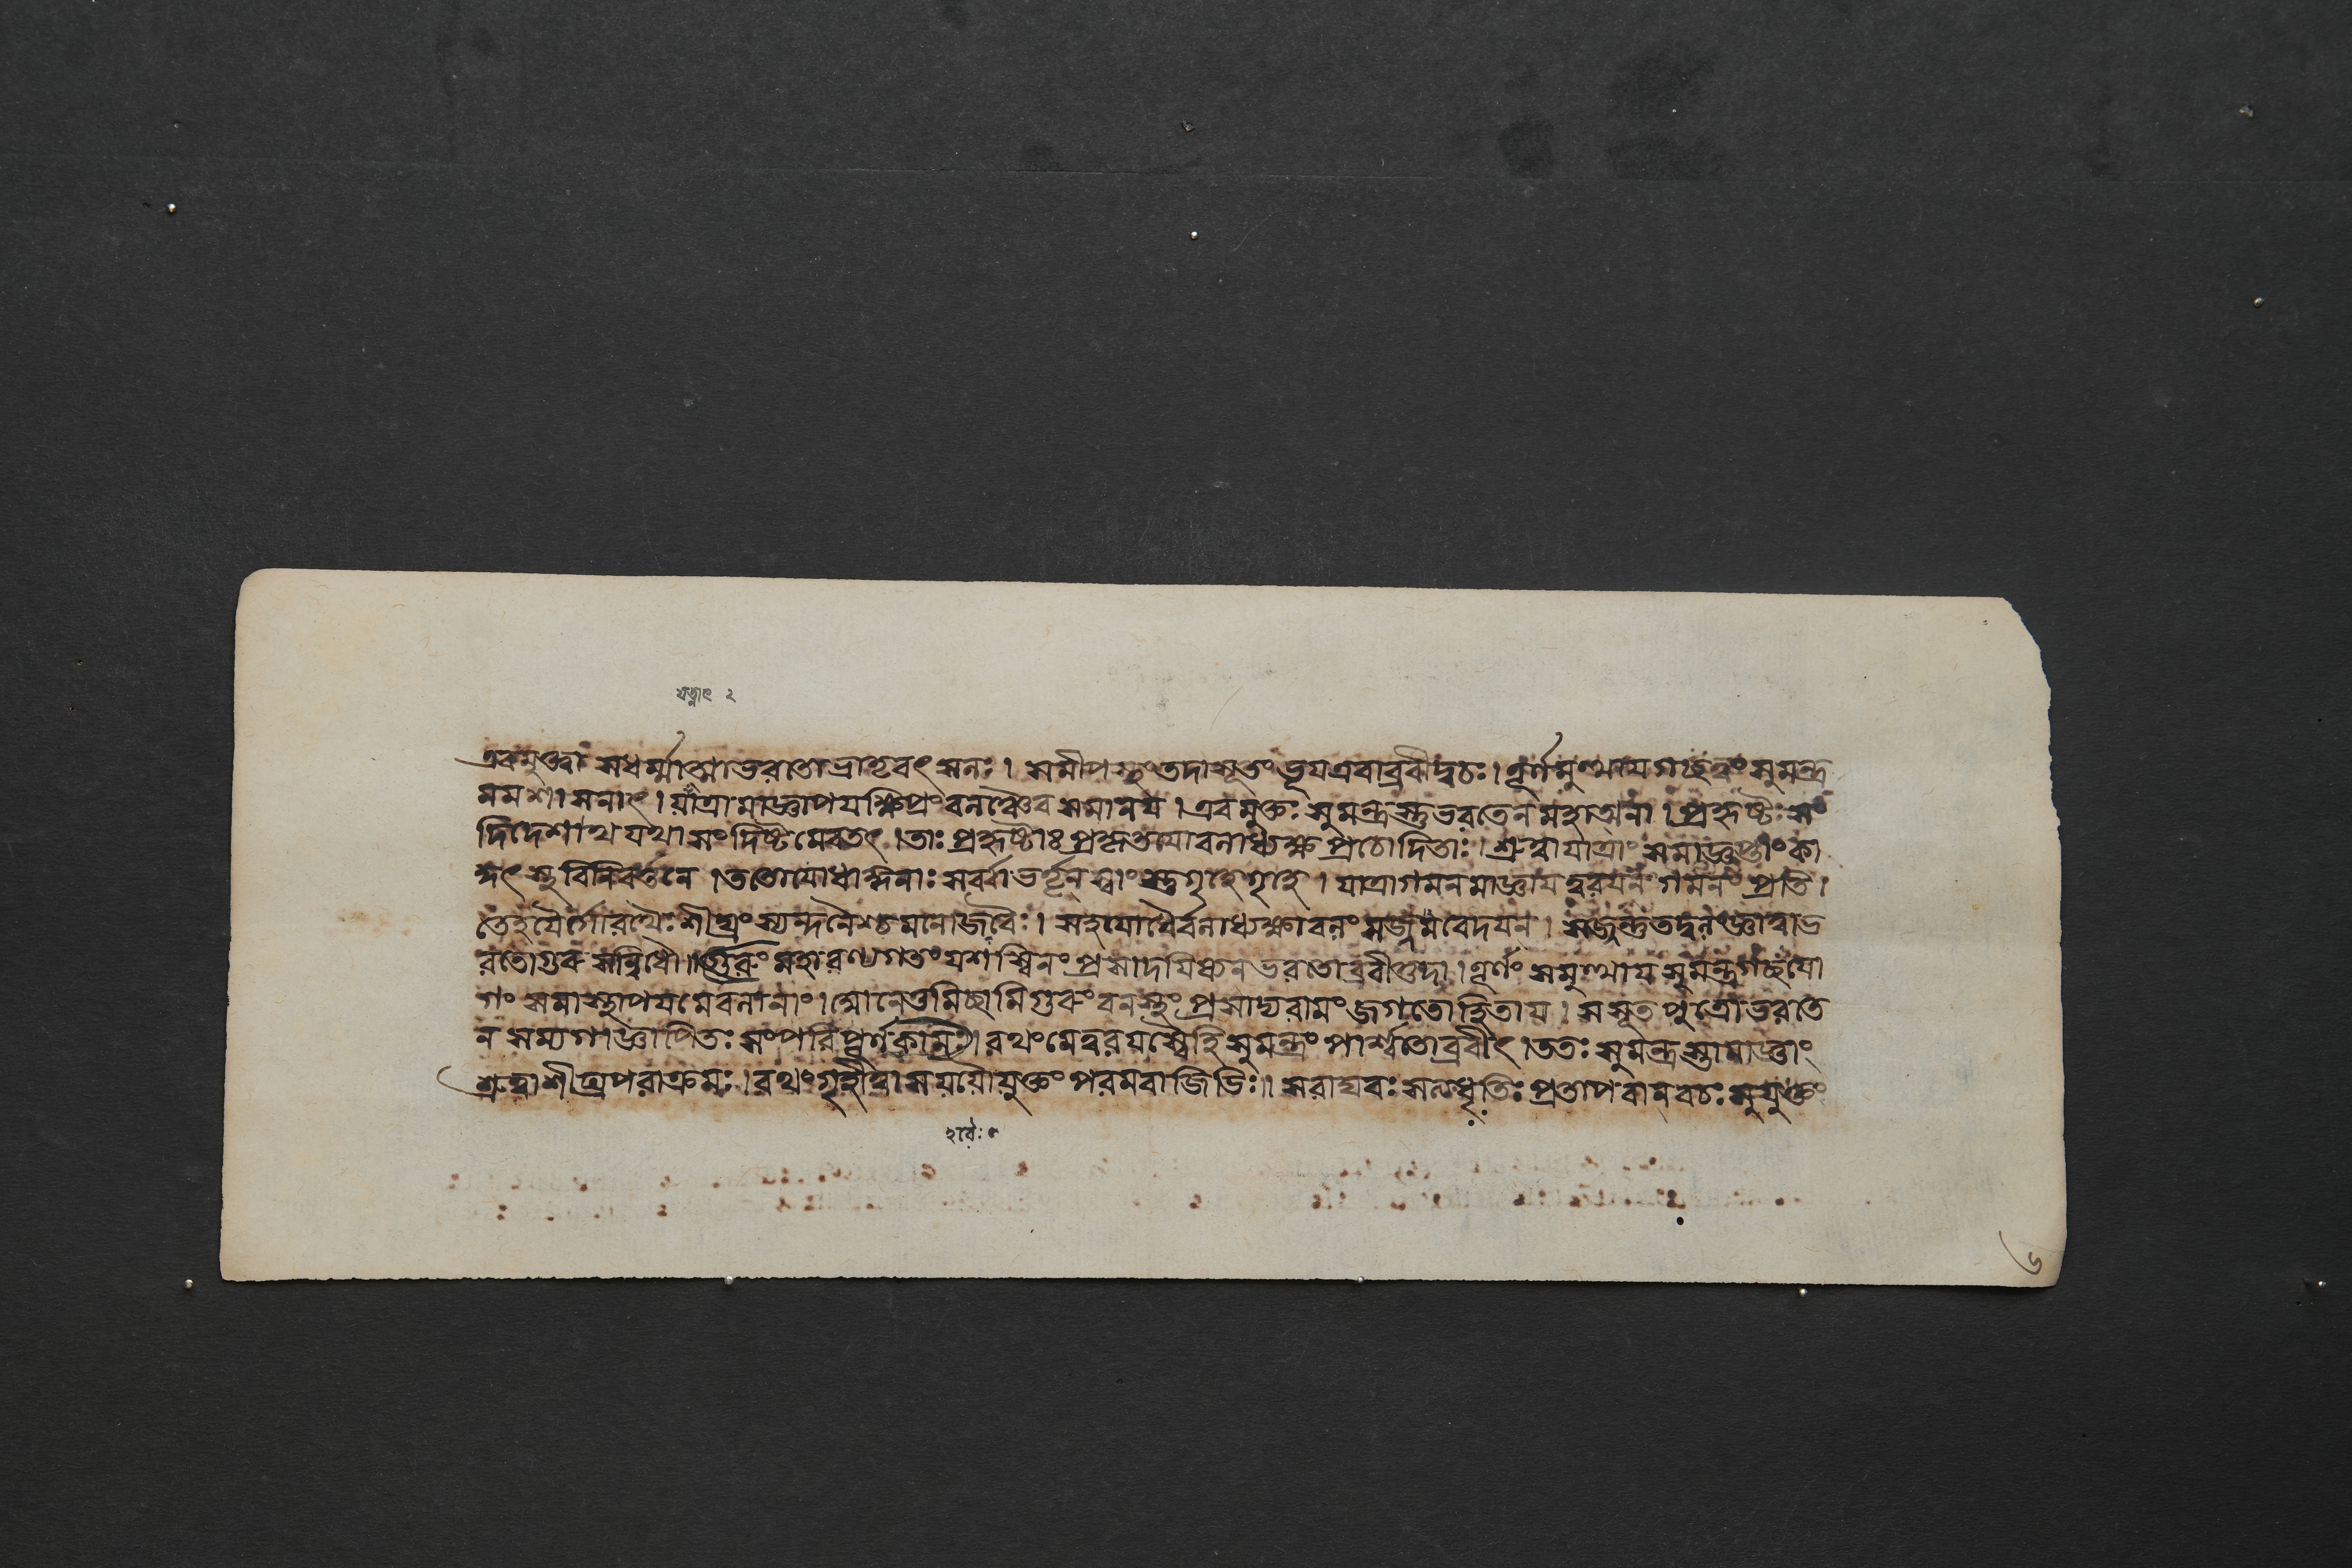 যত্নাৎ ২
এবমুক্ত্বা সধর্ম্মাত্মাভরতোভ্রাতৃবৎসলঃ। সমীপস্থংতদাসূতং ভূয়এবাব্রবীদ্বচঃ। তূর্ণমুত্থায়গচ্ছত্বং সুমন্ত্র
মমশাসনাৎ। যাত্রামাজ্ঞাপয়ক্ষিপ্রং বলঞ্চৈব সমানয়। এবমুক্তঃ সুমন্ত্রস্তুভরতেন মহাত্মনা। প্রহৃষ্টঃ সং
দিদেশাথ যথাসংদিষ্টমেবতৎ। তাঃ প্রহৃষ্টাঃ প্রকৃতয়োবলাধ্যক্ষ প্রচোদিতাঃ। শ্রুত্বাযাত্রাং সমাজ্ঞপ্তাং কা
কুৎস্থবিনিবর্ত্তনে। ততোযোধাঙ্গনাঃ সর্ব্বাভর্তৄন্ স্বাংস্তুগৃহেগৃহে। যাত্রাগমনমাজ্ঞায়ত্বরয়ন্তি গমনং প্রতি।
তেহয়ৈর্গোরথৈঃ শীঘ্রং স্যন্দনৈশ্চমনোজবৈঃ। সহযোধৈর্বলাধ্যক্ষাবলং সজ্জমবেদয়ন্। সজ্জন্তুতদ্বলংজ্ঞাত্বাভ
রতোগুরুসন্নিধৌ। গুরুং মহারণ্যগতং যশস্বিনং প্রসাদয়িষ্যনভরতোব্রবীত্তদা। তূর্ণং সমুত্থায়সুমন্ত্রগচ্ছযো
গং সমাজ্ঞাপয়মেবলানাং। আনেতুমিচ্ছামিগুরুং বনস্থং প্রসাদ্যরামং জগতোহিতায়। সসূতপুত্রোভরতে
ন সম্যগাজ্ঞাপিতঃ সংপরিপূর্ণকামঃ। রথংমেত্বরয়স্বেতিসুমন্ত্রং পার্শ্বতোব্রবীৎ। ততঃ সুমন্ত্রস্তামাজ্ঞাং
শ্রুত্বাশীঘ্রপরাক্রমঃ। রথং গৃহীত্বাসযযৌযুক্তং পরমবাজিভিঃ। সরাঘবঃ সত্যধৃতিঃ প্রতাপবান্ বচঃ সুযুক্তং
৬